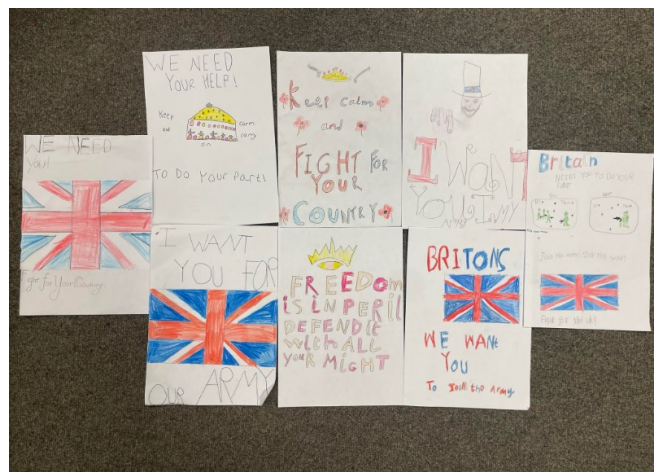 WE NEED
you!
Fight for Your Country
WE NEED
YOUR HELP!
Keep
calm
and
carry
on
To Do Your Part!
Keep calm
and
FIGHT FOR
YOUR
COUNTRY
I WANT
YOU
Britain
NEEDS YOU TO DO YOUR
PART
I WANT
YOU FOR
OUR ARMY
FREEDOM
IS IN PERIL
DEFEND IT
WITH ALL
YOUR MIGHT
BRITONS
WE WANT
YOU
To Join the Army